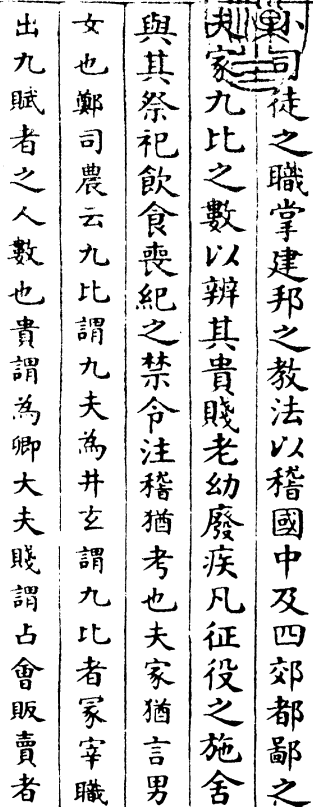 小司徒之職掌建邦之教法以稽國中及四郊都鄙之
夫家九比之數以辨其貴賤老幼廢疾凡征役之施舍
與其祭祀飲食喪紀之禁令注稽猶考也夫家猶言男
女也鄭司農云九比謂九夫為井玄謂九比者冢宰職
出九賦者之人數也貴謂為卿大夫賤謂占會販賣者